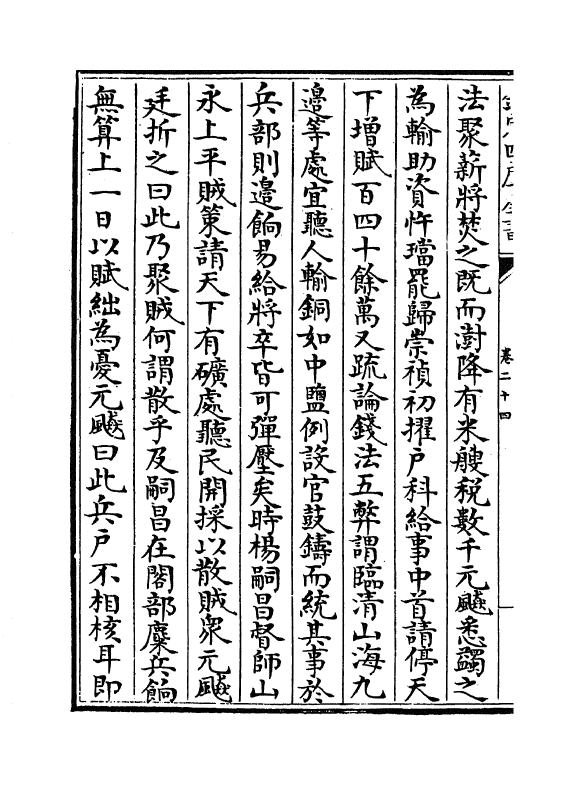 欽定四庫全書
卷二十四
法聚薪將焚之既而澍降有米艘稅數千元飈悉蠲之
為輸助資忤璫罷歸崇禎初擢户科給事中首請停天
下增賦百四十餘萬又疏論錢法五弊謂臨清山海九
邊等處宜聽人輸銅如中鹽例設官鼓鑄而統其事於
兵部則邊餉易給將卒皆可彈壓矣時楊嗣昌督師山
永上平賊策請天下有礦處聽民開採以散賊衆元飈
廷折之曰此乃聚賊何謂散乎及嗣昌在閣部糜兵餉
無算上一日以賦絀為憂元飈曰此兵户不相核耳即